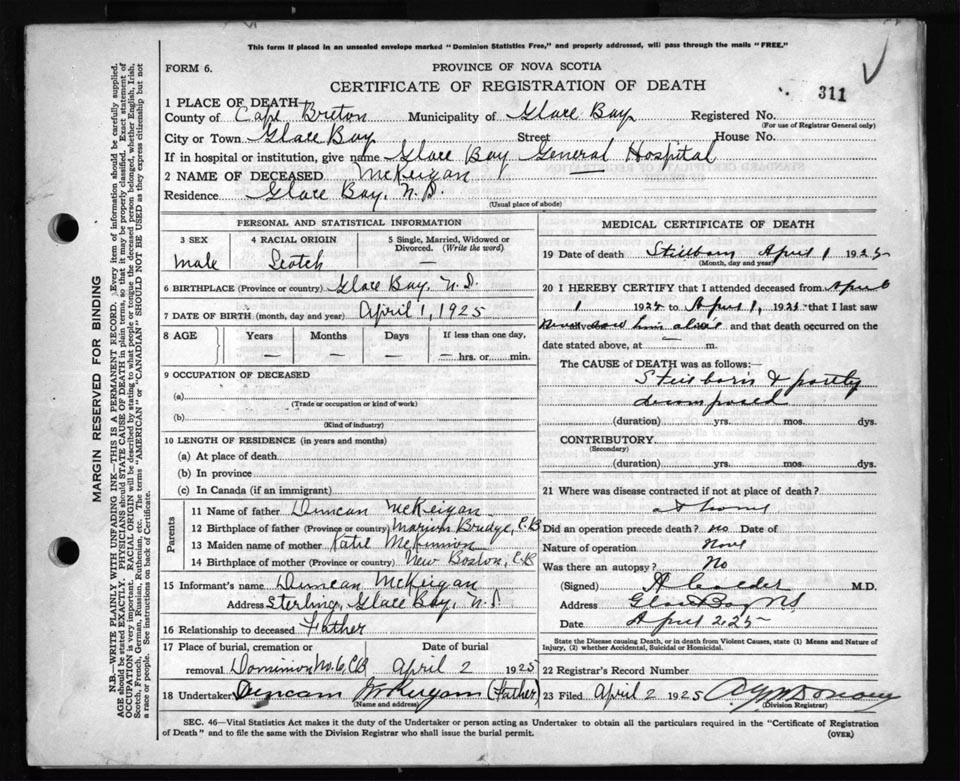 This form if placed in an unsealed envelope marked "Dominion Statistics Free," and properly addressed, will pass through the mails "FREE."
FORM 6.
PROVINCE OF NOVA SCOTIA
CERTIFICATE OF REGISTRATION OF DEATH
311
1 PLACE OF DEATH—
County of Cape Breton Municipality of Glace Bay Registered No.
(For use of Registrar General only)
City or Town Glace Bay Street House No.
If in hospital or institution, give name Glace Bay General Hospital
2 NAME OF DECEASED McKeigan
Residence Glace Bay, N.S.
(Usual place of abode)
PERSONAL AND STATISTICAL INFORMATION
3 SEX
4 RACIAL ORIGIN
5 Single, Married, Widowed or Divorced. (Write the word)
male Scotch —
6 BIRTHPLACE (Province or country) Glace Bay, N.S.
7 DATE OF BIRTH (month, day and year) April 1, 1925
8 AGE Years Months Days If less than one day,
— — — — hrs. or min.
9 OCCUPATION OF DECEASED
(a)
(Trade or occupation or kind of work)
(b)
(Kind of industry)
10 LENGTH OF RESIDENCE (in years and months)
(a) At place of death
(b) In province
(c) In Canada (if an immigrant)
Parents
11 Name of father Duncan McKeigan
12 Birthplace of father (Province or country) Marion Bridge, C.B
13 Maiden name of mother Katie McKinnon
14 Birthplace of mother (Province or country) New Boston, C.B
15 Informant's name Duncan McKeigan
Address Sterling, Glace Bay, N.S.
16 Relationship to deceased Father
17 Place of burial, cremation or Date of burial
removal Dominion No. 6, C.B April 2 1925
18 Undertaker Duncan McKeigan (Father)
(Name and address)
MEDICAL CERTIFICATE OF DEATH
19 Date of death Stillborn April 1 1925
(Month, day and year)
20 I HEREBY CERTIFY that I attended deceased from April
1 1925 to April 1, 1925 that I last saw
him alive and that death occurred on the
date stated above, at — m.
The CAUSE of DEATH was as follows:
Stillborn & partly
decomposed
(duration) yrs. mos. dys.
CONTRIBUTORY
(Secondary)
(duration) yrs. mos. dys.
21 Where was disease contracted if not at place of death?
At home
Did an operation precede death? no Date of
Nature of operation None
Was there an autopsy? No
(Signed) M.D.
Address Glace Bay NS
Date April 2, 25
State the Disease causing Death, or in death from Violent Causes, state (1) Means and Nature of Injury, (2) whether Accidental, Suicidal or Homicidal.
22 Registrar's Record Number
23 Filed April 2 1925
(Division Registrar)
SEC. 46—Vital Statistics Act makes it the duty of the Undertaker or person acting as Undertaker to obtain all the particulars required in the "Certificate of Registration
of Death" and to file the same with the Division Registrar who shall issue the burial permit.
(OVER)
MARGIN RESERVED FOR BINDING
N.B.—WRITE PLAINLY WITH UNFADING INK—THIS IS A PERMANENT RECORD. Every item of information should be carefully supplied.
AGE should be stated EXACTLY. PHYSICIANS should STATE CAUSE OF DEATH in plain terms, so that it may be properly classified. Exact statement of
OCCUPATION is very important. RACIAL ORIGIN will be described by stating to what people or tongue the deceased person belonged, whether English, Irish,
Scotch, French, German, Russian, Ruthenian, etc. The terms "AMERICAN" or "CANADIAN" SHOULD NOT BE USED as they express citizenship but not
a race or people. See instructions on back of Certificate.